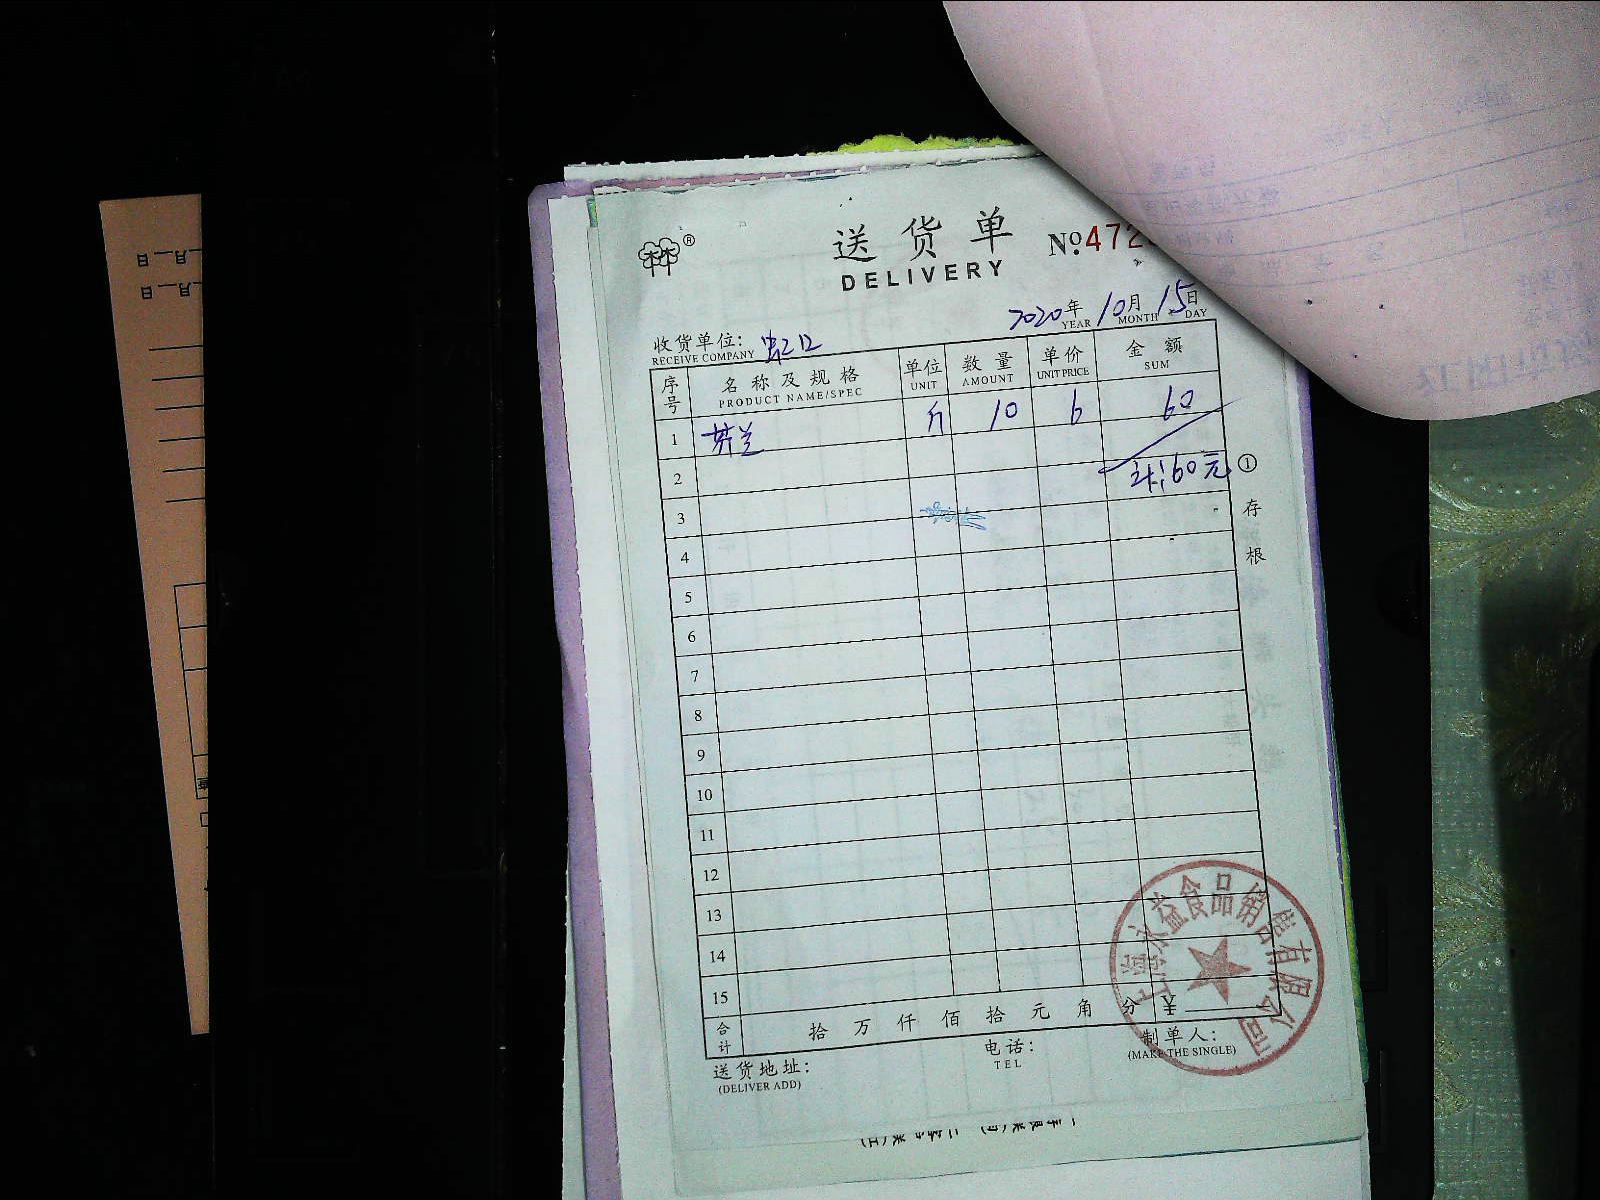 林®
送货单
№472
DELIVERY
2020年10月15日
YEAR MONTH DAY
收货单位:
RECEIVE COMPANY
序号 名称及规格 单位 数量 单价 金额
PRODUCT NAME/SPEC UNIT AMOUNT UNIT PRICE SUM
1 芥兰 斤 10 6 60
2 计:60元
3
4
5
6
7
8
9
10
11
12
13
14
15
合计 拾 万 仟 佰 拾 元 角 分 ¥
送货地址: 电话: 制单人:
(DELIVER ADD) TEL (MAKE THE SINGLE)
① 存根
上海永益食品销售有限公司
月 日
月 日